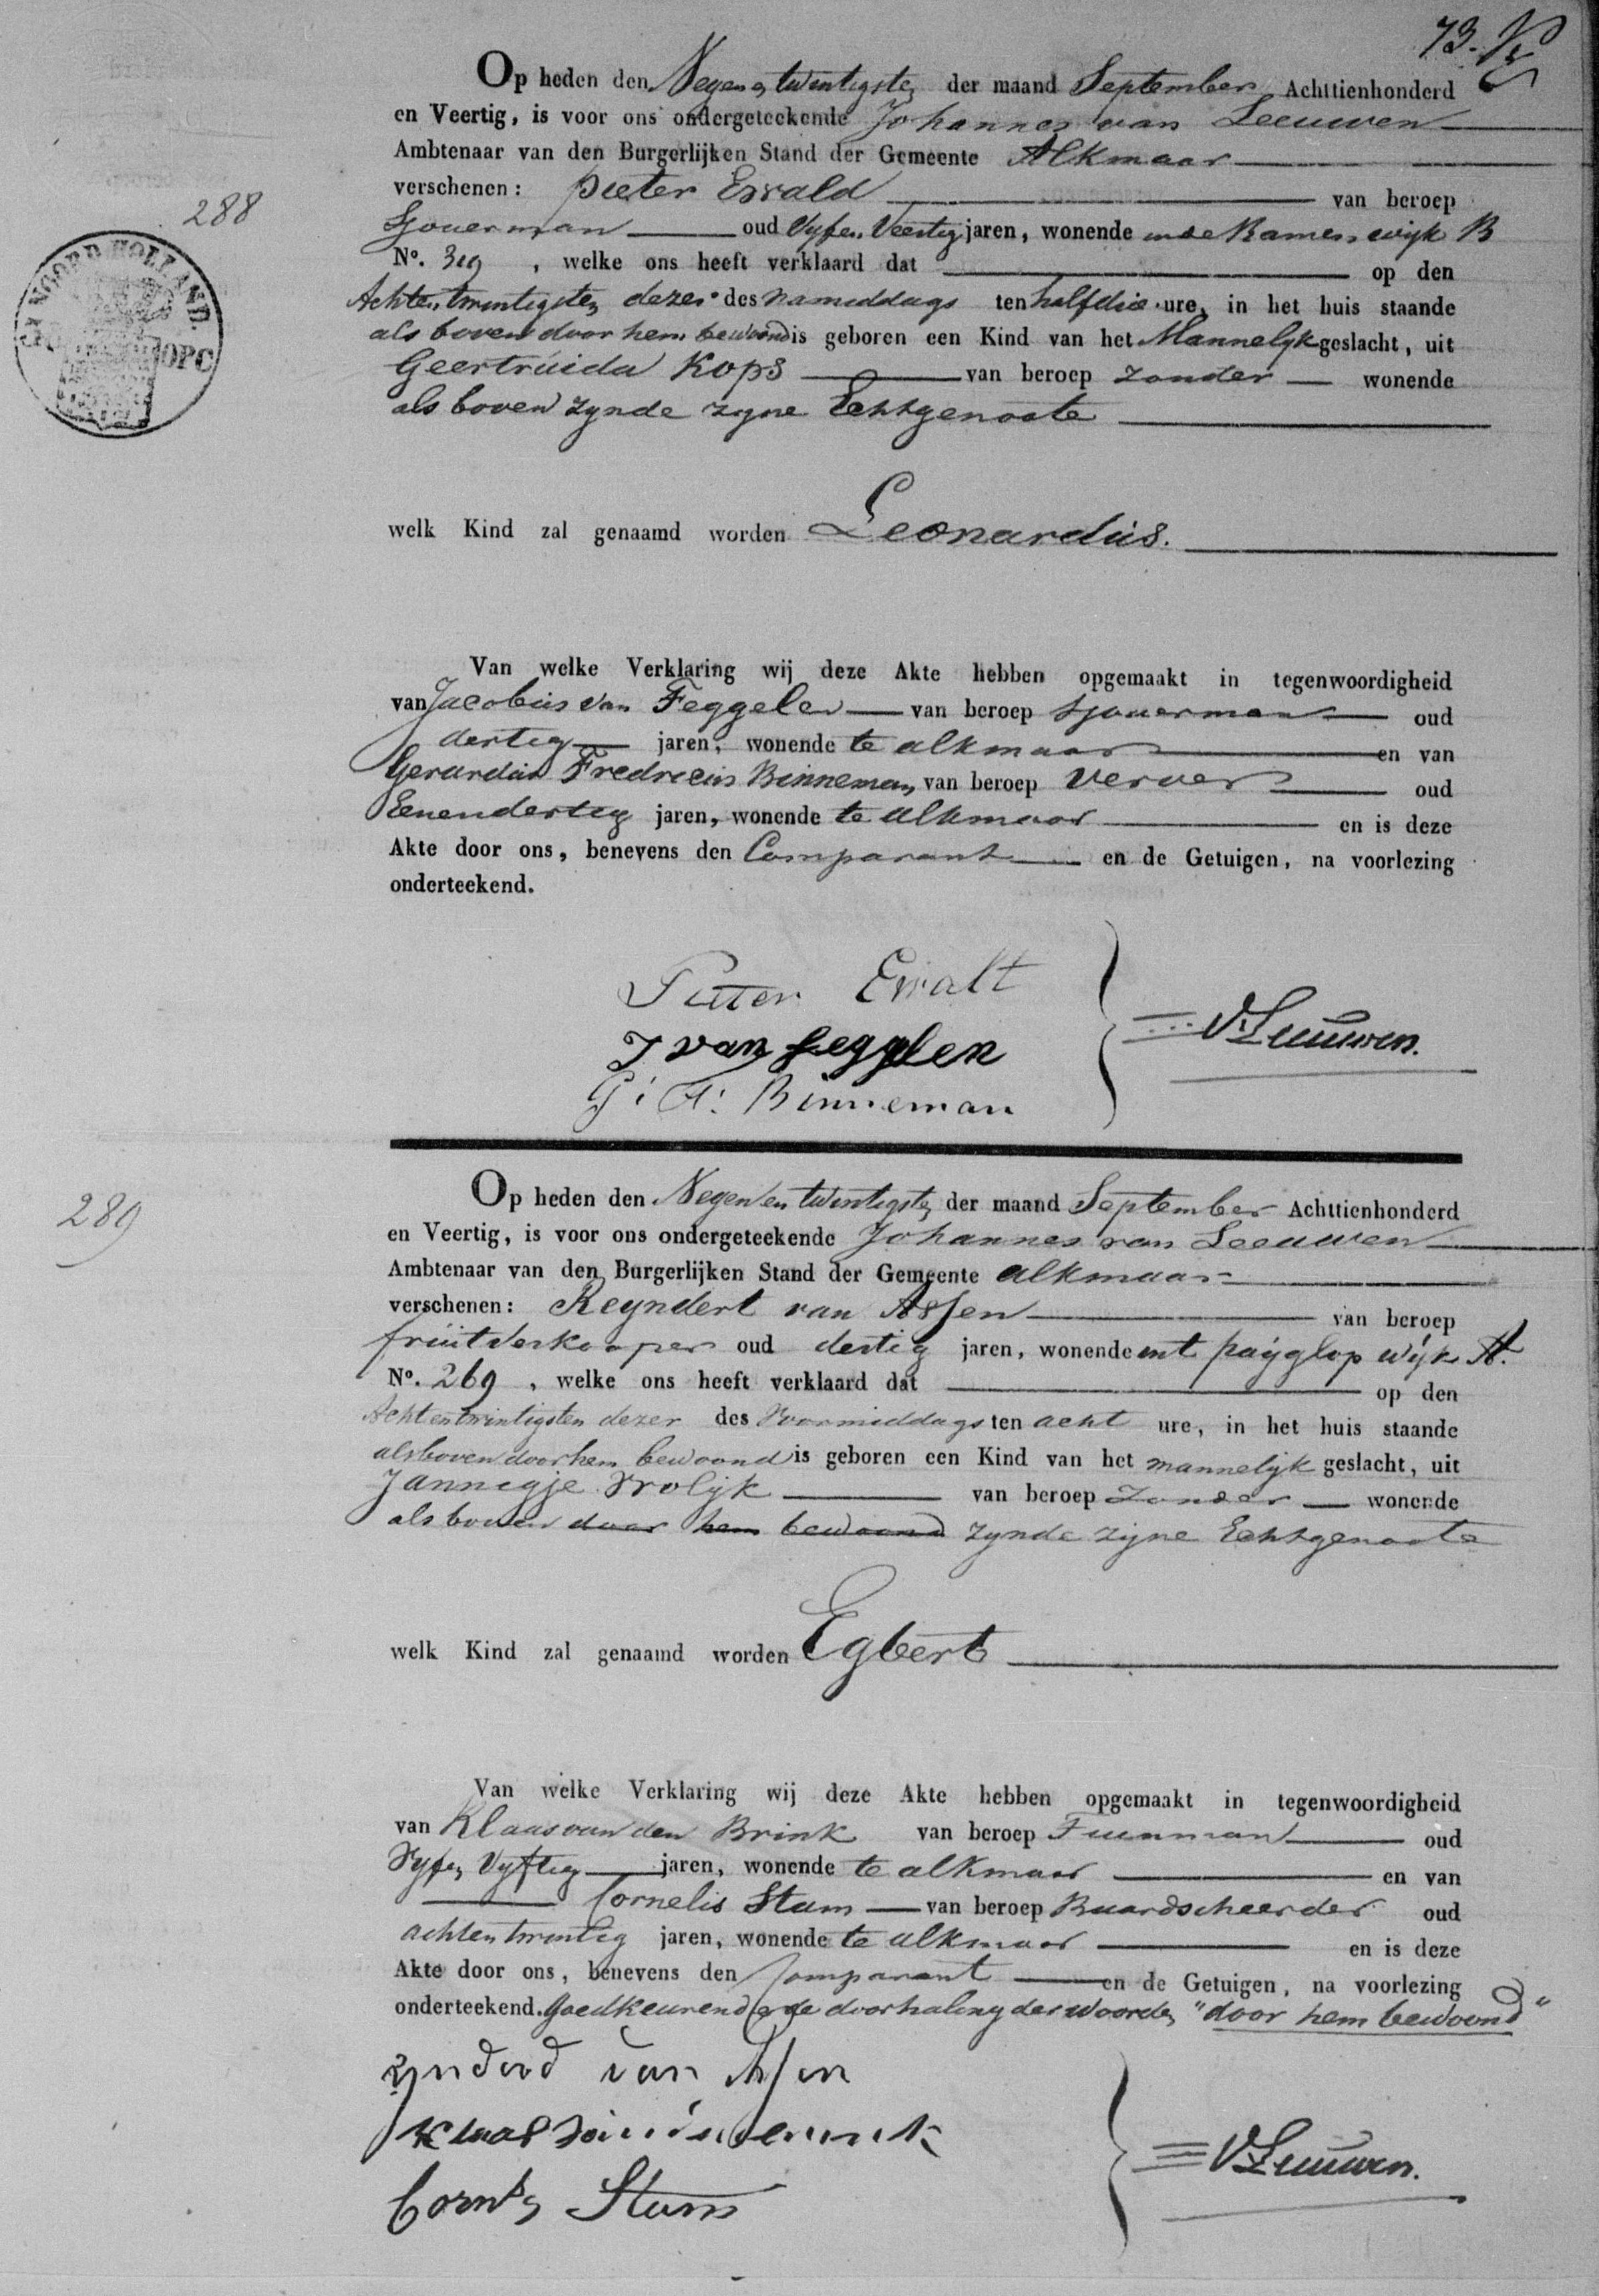 73.
Op heden den Negen en twintigsten der maand September Achttienhonderd
en Veertig, is voor ons ondergeteekende Johannes van Leeuwen
Ambtenaar van den Burgerlijken Stand der Gemeente Alkmaar
288
verschenen: Pieter Ewald van beroep
Sjouerman oud Vyf en Veertig jaren, wonende in de Ramen wijk B
No. 319, welke ons heeft verklaard dat op den
Achten twintigsten dezer des namiddags ten half drie ure, in het huis staande
als boven door hem bewoond is geboren een Kind van het Mannelyk geslacht, uit
Geertruida Kops van beroep zonder wonende
als boven zynde zyne Echtgenoote
NOORD HOLLAND.
welk Kind zal genaamd worden Leonardus.
Van welke Verklaring wij deze Akte hebben opgemaakt in tegenwoordigheid
van Jacobus van Feggelen van beroep sjouerman oud
dertig jaren, wonende te alkmaar en van
Gerardus Fredricus Binneman van beroep Verver oud
Eenendertig jaren, wonende te alkmaar en is deze
Akte door ons, benevens den Comparant en de Getuigen, na voorlezing
onderteekend.
Pieter Ewalt
J van fegglen
G: F: Binneman
V Leeuwen.
289
Op heden den Negen en twintigsten der maand September Achttienhonderd
en Veertig, is voor ons ondergeteekende Johannes van Leeuwen
Ambtenaar van den Burgerlijken Stand der Gemeente alkmaar
verschenen: Reyndert van Assen van beroep
fruitverkooper oud dertig jaren, wonende int payglop wijk A.
No. 269, welke ons heeft verklaard dat op den
Achtentwintigsten dezer des Voormiddags ten acht ure, in het huis staande
als boven door hem bewoond is geboren een Kind van het mannelijk geslacht, uit
Jannegje Vrolijk van beroep Zonder wonende
als boven door hem bewoond zynde zijne Echtgenoote
welk Kind zal genaamd worden Egbert
Van welke Verklaring wij deze Akte hebben opgemaakt in tegenwoordigheid
van Klaas van den Brink van beroep Tuenman oud
Vyf en Vyftig jaren, wonende te alkmaar en van
Cornelis Stam van beroep Baardscheerder oud
achtentwintig jaren, wonende te alkmaar en is deze
Akte door ons, benevens den Comparant en de Getuigen, na voorlezing
onderteekend. Goedkeurende de doorhaling der woorden "door hem bewoond"
van Assen
Klaas
Corns Stam
V Leeuwen.